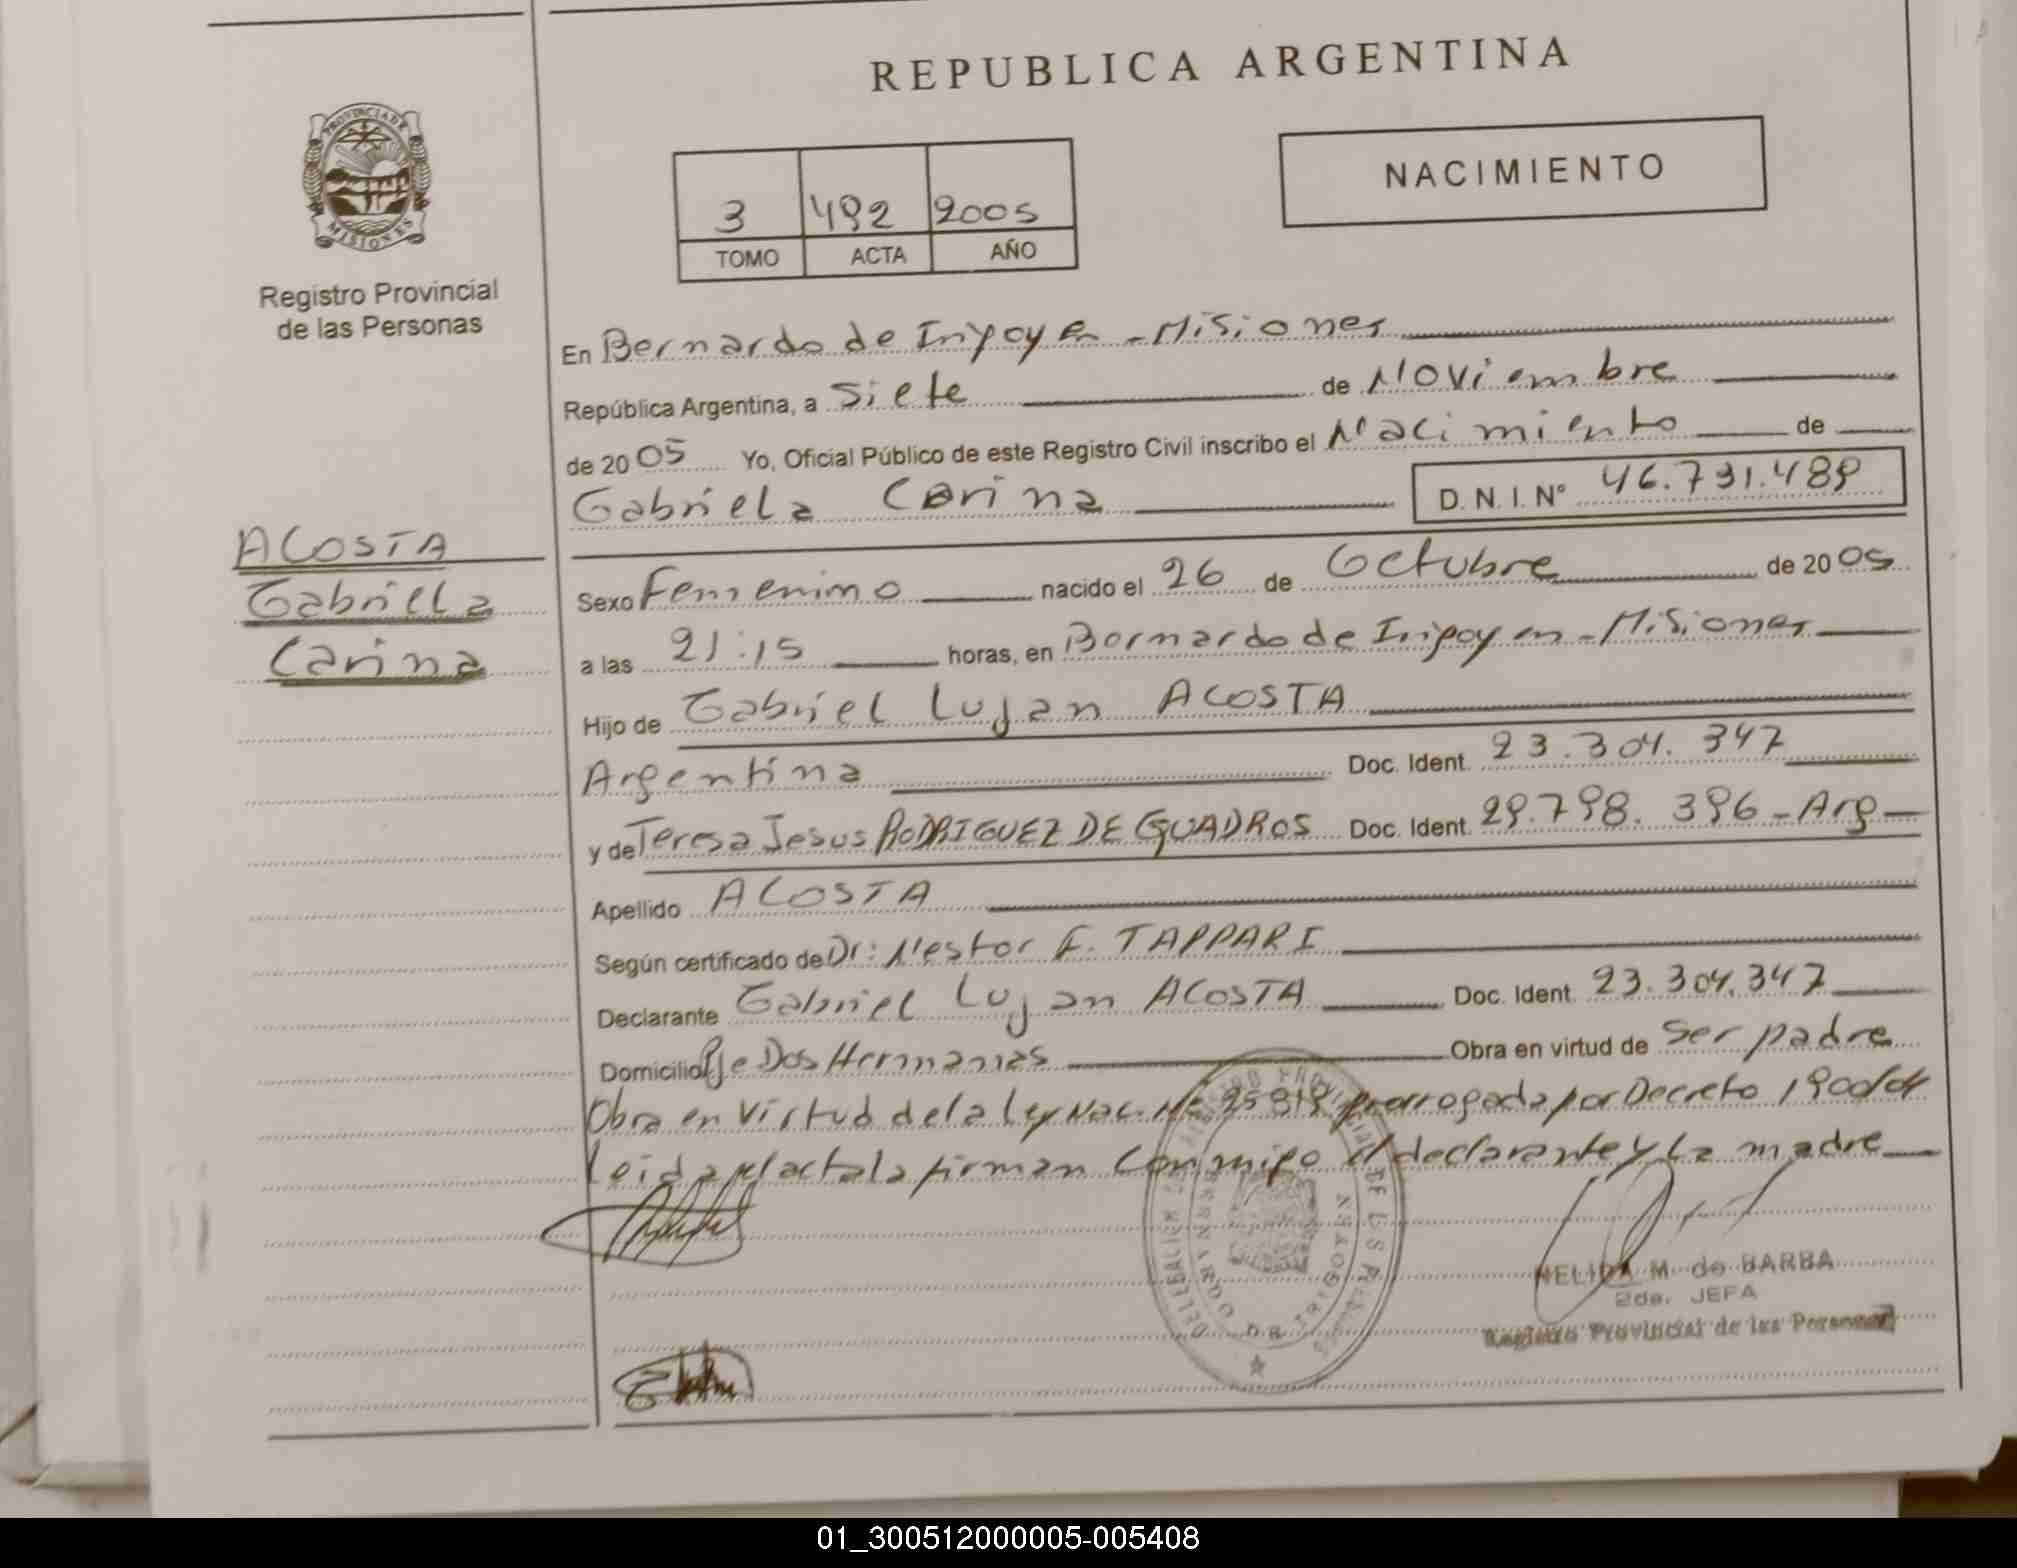 REPUBLICA ARGENTINA
PROVINCIA DE MISIONES
Registro Provincial
de las Personas
3 492 2005
TOMO ACTA AÑO
NACIMIENTO
En Bernardo de Irigoyen - Misiones
República Argentina, a Siete de Noviembre
de 2005 Yo, Oficial Público de este Registro Civil inscribo el Nacimiento de
Gabriela Carina D. N. I. Nº 46.731.489
ACOSTA
Gabriela
Carina
Sexo Femenino nacido el 26 de Octubre de 2005
a las 21:15 horas, en Bernardo de Irigoyen - Misiones
Hijo de Gabriel Lujan ACOSTA
Argentina Doc. Ident. 23.304.347
y de Teresa Jesus RODRIGUEZ DE QUADROS Doc. Ident. 29.798.396 - Arg
Apellido ACOSTA
Según certificado de Dr: Nestor F. TAPPARI
Declarante Gabriel Lujan ACOSTA Doc. Ident. 23.304.347
Domicilio Pje Dos Hermanas Obra en virtud de Ser padre
Obra en Virtud de la Ley Nac. Nº 25819 prorrogada por Decreto 1900/04
Leida el acta la firman Conmigo el declarante y La madre
NELIDA M. de BARBA
2da. JEFA
Registro Provincial de las Personas
01_300512000005-005408